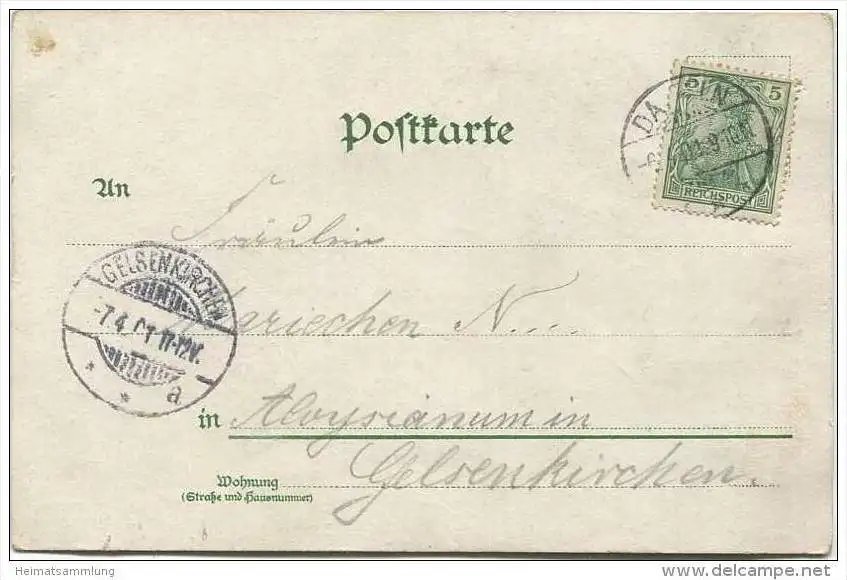 Postkarte
5 5
REICHSPOST
An
Fräulein
GELSENKIRCHEN
-7.4.01 11-12V.
* * a
Mariechen N....
in Aloysianum in
Gelsenkirchen.
Wohnung
(Straße und Hausnummer)
Heimatsammlung
delcampe.net